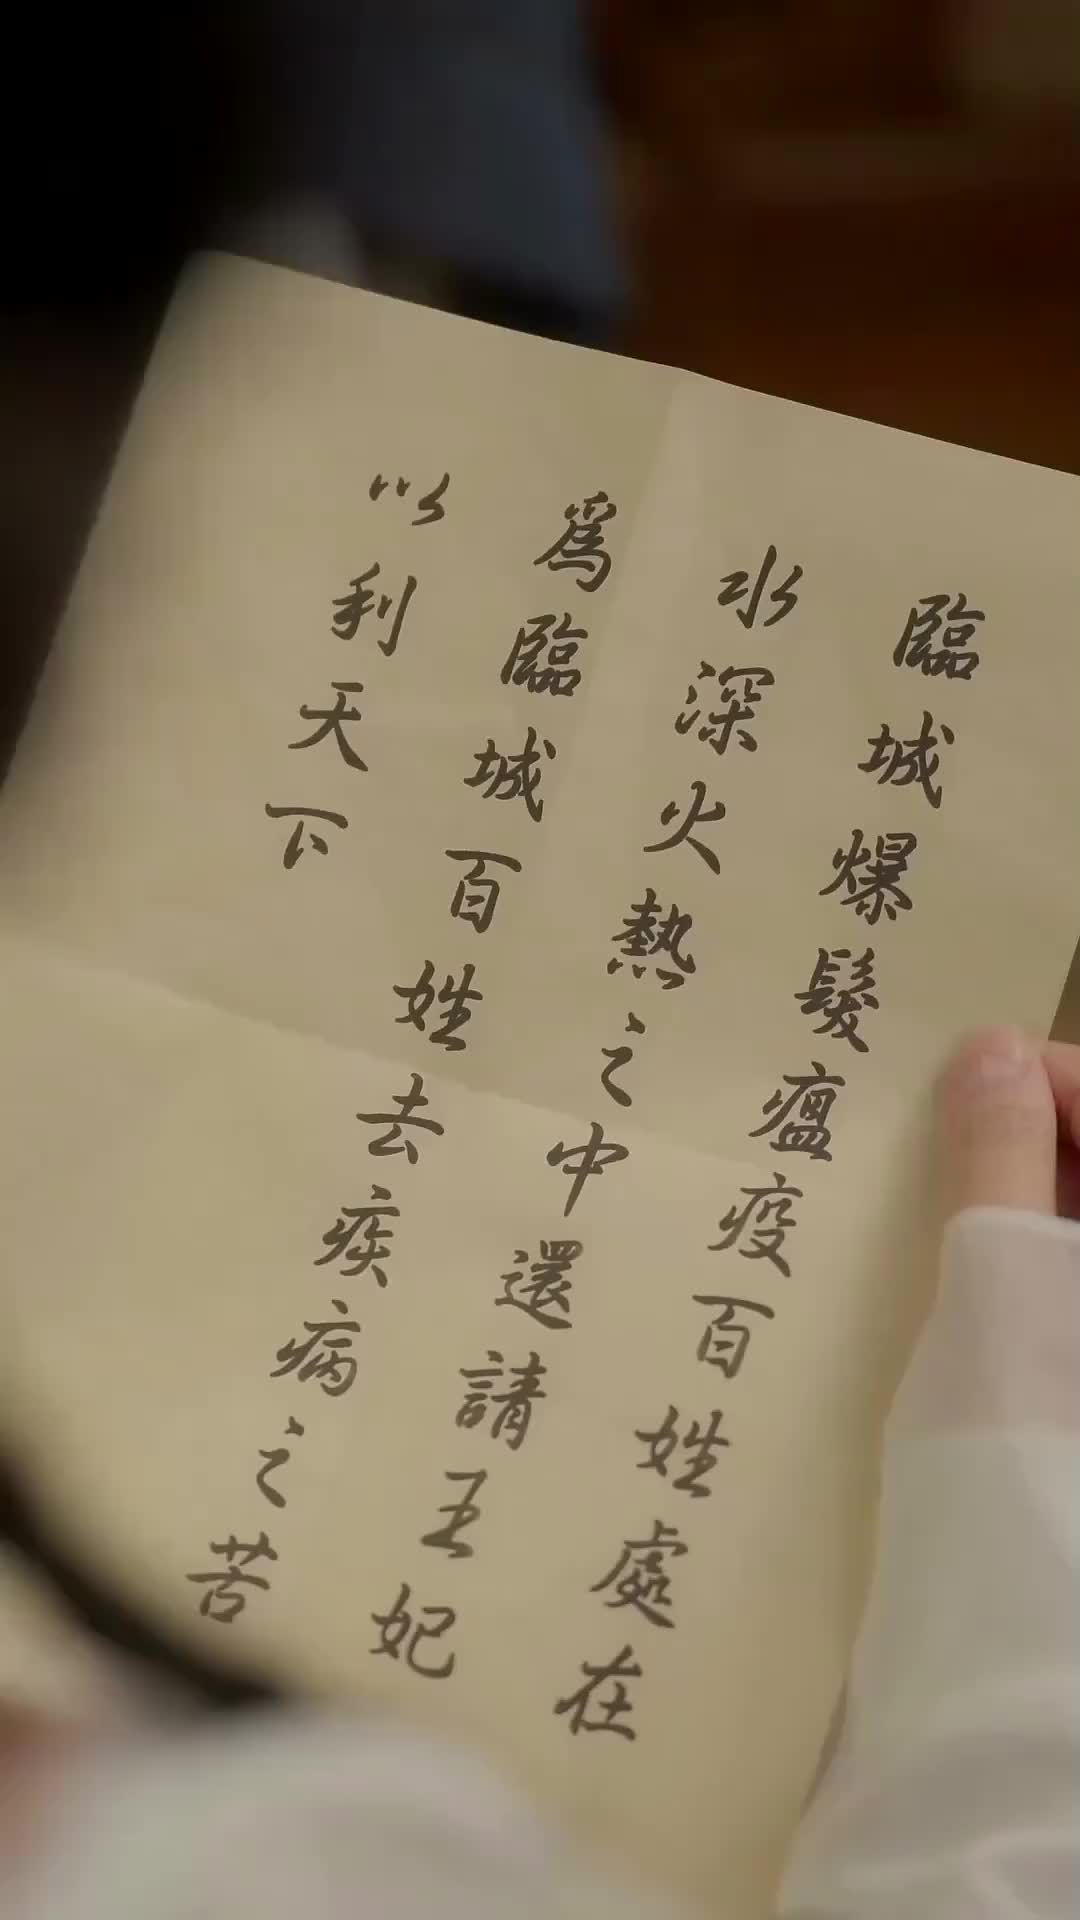 臨城爆髮瘟疫百姓處在
水深火熱之中還請王妃
爲臨城百姓去疾病之苦
以利天下